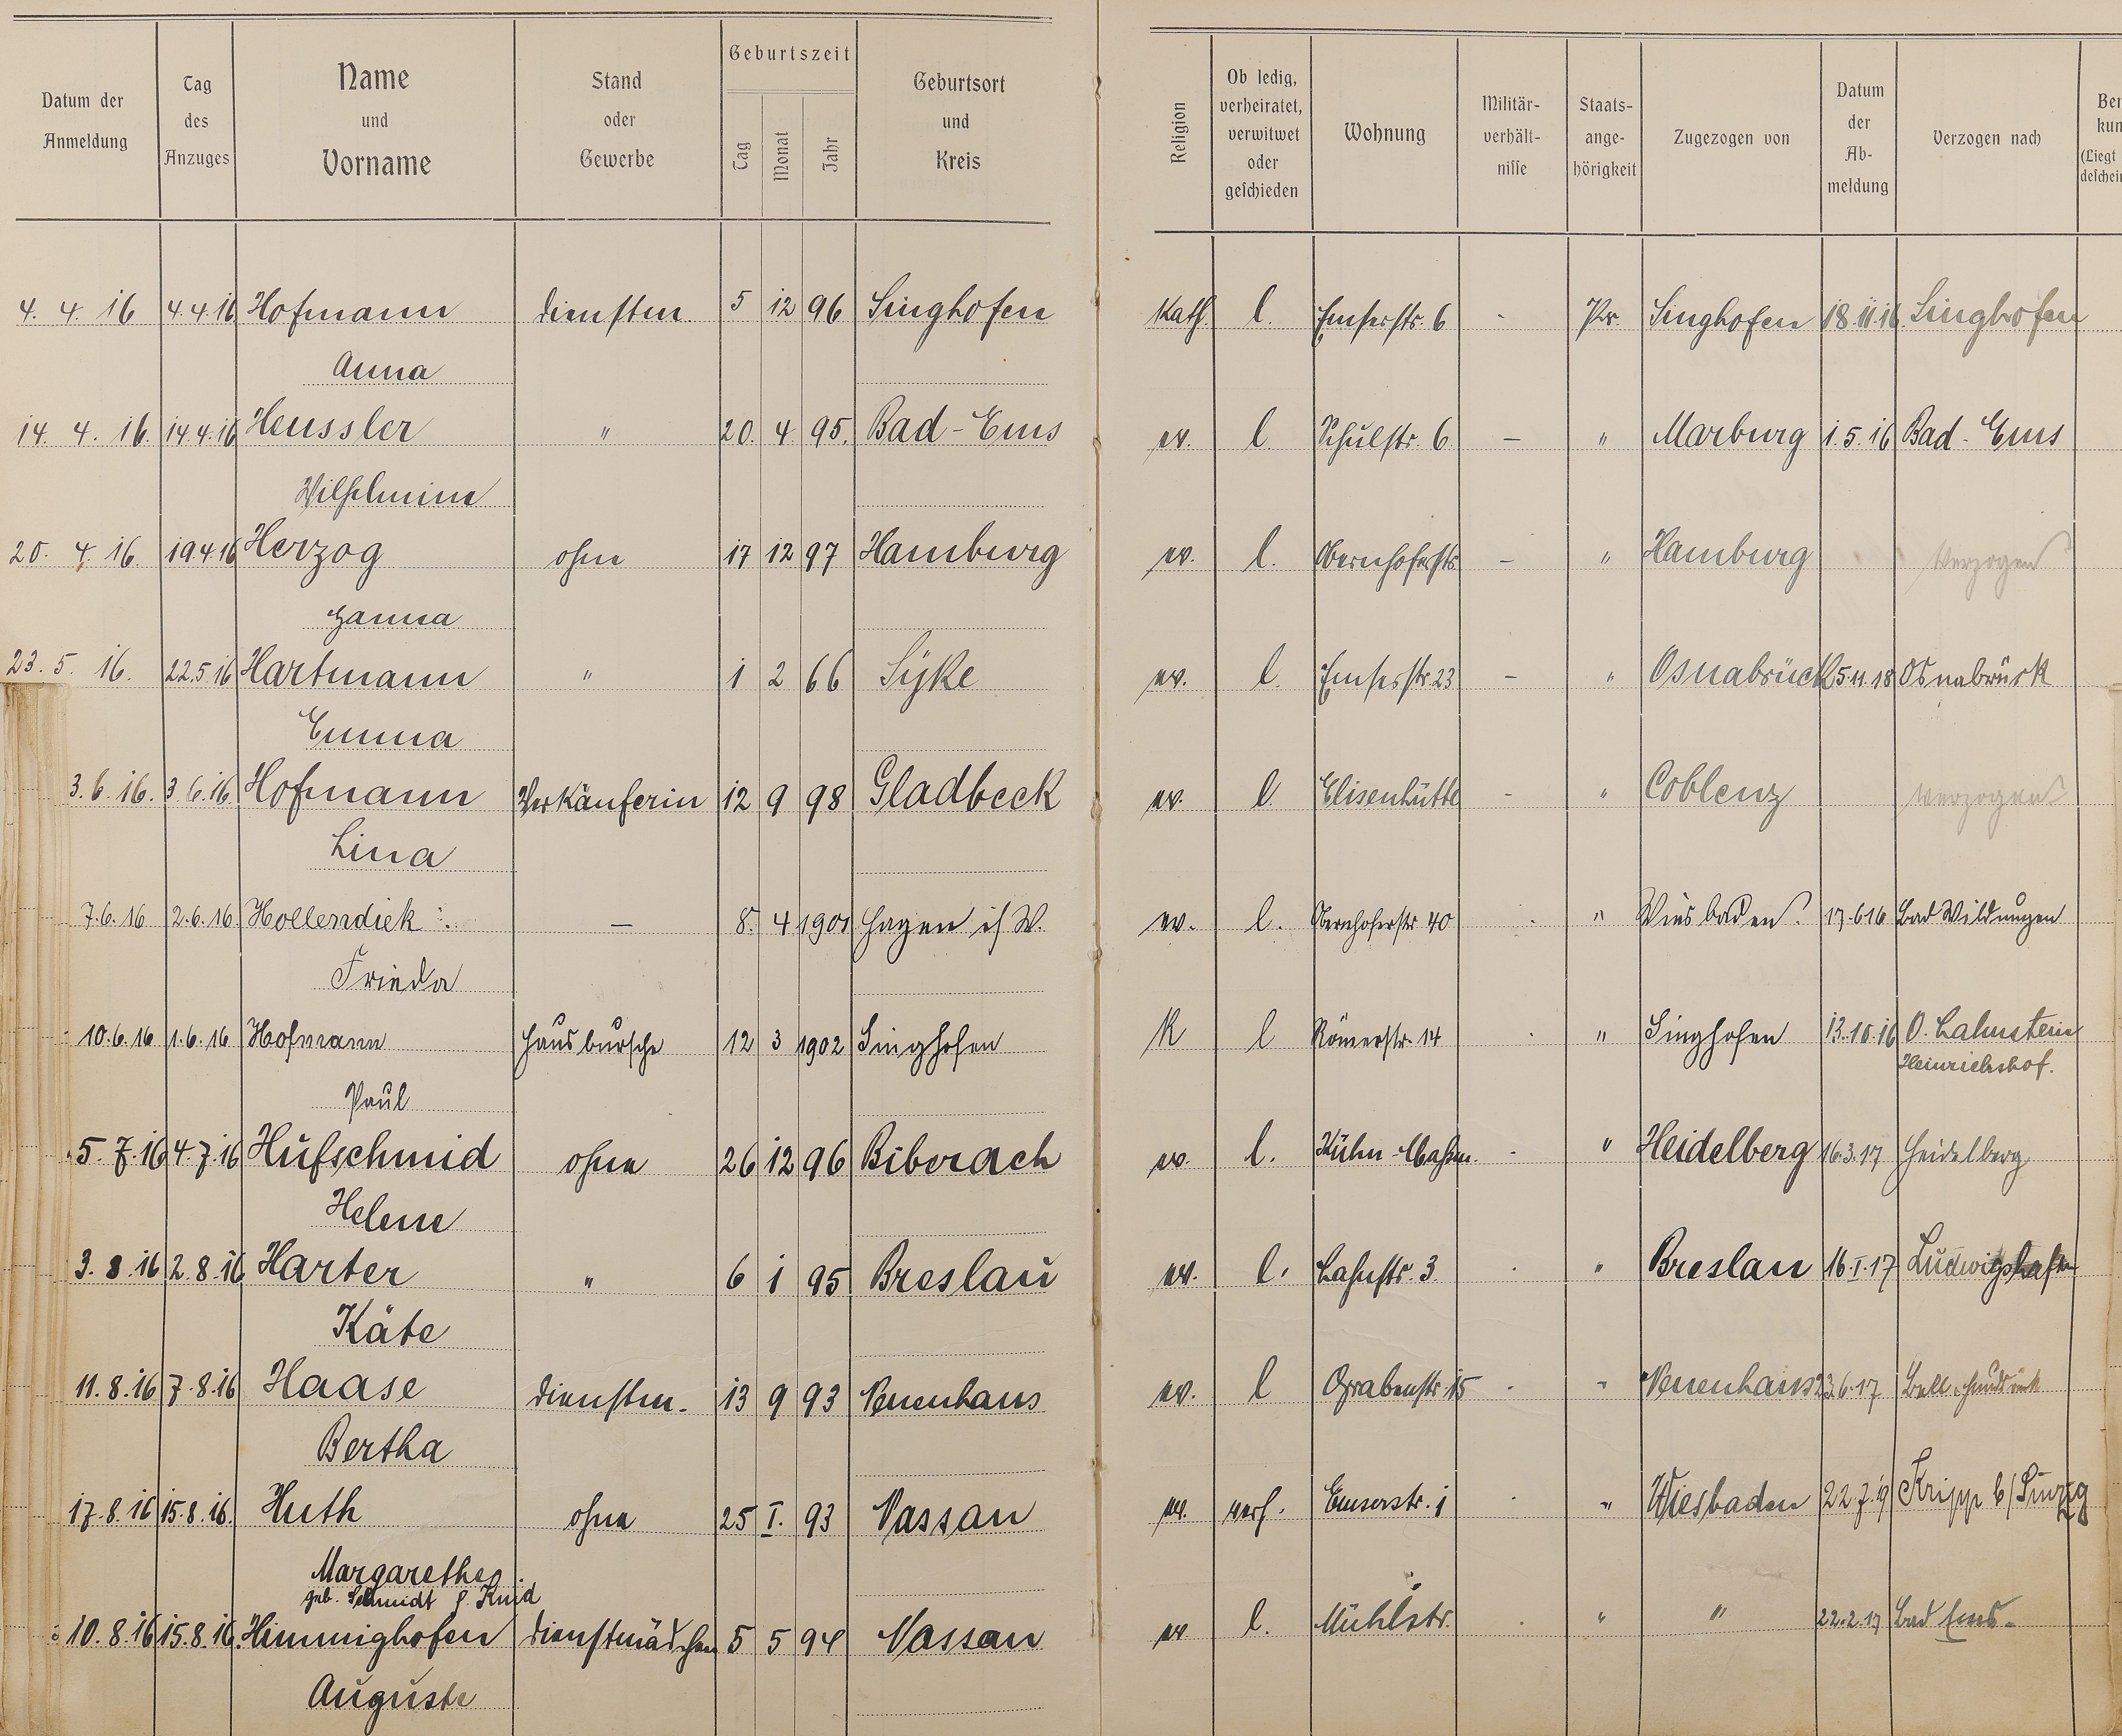 Datum der Anmeldung | Tag des Anzuges | Name und Vorname | Stand oder Gewerbe | Geburtszeit Tag Monat Jahr | Geburtsort und Kreis | Religion | Ob ledig, verheiratet, verwitwet oder geschieden | Wohnung | Militär-verhält-nisse | Staats-ange-hörigkeit | Zugezogen von | Datum der Ab-meldung | Verzogen nach
4. 4. 16 4.4.16 Hofmann Dienstm. 5 12 96 Singhofen Kath. l. Emserstr. 6 - Pr. Singhofen 18.11.16. Singhofen
Anna
14. 4. 16. 14.4.16 Heussler " 20. 4 95. Bad-Ems ev. l. Schulstr. 6. — " Marburg 1.5.16 Bad-Ems
Wilhelmine
20. 4. 16. 19.4.16 Herzog ohne 17 12 97 Hamburg ev. l. Obernhoferstr. — " Hamburg Verzogen
Hanna
23. 5. 16. 22.5.16 Hartmann " 1 2 66 Syke ev. l. Emserstr. 23 — " Osnabrück 5.11.18 Osnabrück
Emma
3.6.16. 3.6.16. Hofmann Verkäuferin 12 9 98 Gladbeck ev. l. Elisenhütte - " Coblenz verzogen
Lina
7.6.16 2.6.16. Hollendiek — 8. 4 1901 Hagen i/W. ev. l. Obernhoferstr 40 " Wiesbaden. 17.6.16 Bad Wildungen
Frieda
10.6.16 1.6.16 Hofmann Hausbursche 12 3 1902 Singhofen K l Römerstr. 14 " Singhofen 13.10.16 O. Lahnstein
Heinrichshof.
Paul
5.7.16 4.7.16 Hufschmid ohne 26 12 96 Biberach ev. l. Kühn - " Heidelberg 16.3.17 Heidelberg
Helene
3.8.16 2.8.16 Harter " 6 1 95 Breslau ev. l. Lahnstr. 3 " Breslau 16.I.17 Ludwigshafen
Käte
11.8.16 7.8.16 Haase Dienstm. 13 9 93 Neuenhaus ev. l Grabenstr. 15 " Neuenhaus 23.6.17
Bertha
17.8.16 15.8.16. Huth ohne 25 I. 93 Nassau ev. verh. Emserstr. 1 " Wiesbaden 22.7.19 Kripp b/Sinzig
Margarethe
geb. Schmidt
10.8.16 15.8.16. Himmighofen Dienstmädchen 5 5 94 Nassau ev l. Mühlstr. " " 22.2.17 Bad Ems.
Auguste